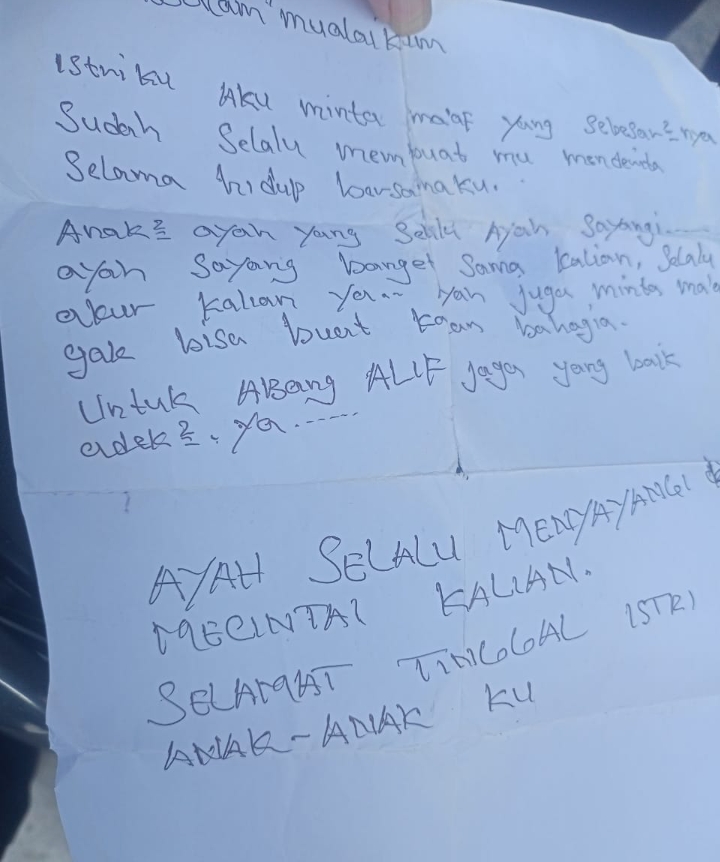 mualaikum
istriku
Aku minta ma'af yang sebesar²nya
Sudah Selalu membuat mu menderita
Selama hidup bersamaku.
Anak² ayah yang Selalu Ayah Sayangi......
ayah Sayang banget Sama Kalian, Selalu
akur Kalian Ya... Yah juga minta
gak bisa buat bahagia.
Untuk ABang ALIF jaga yang baik
adek². Ya......
AYAH SELALU MENYAYANGI
MECINTAI KALIAN.
SELAMAT TINGGAL ISTRI
ANAK-ANAK KU